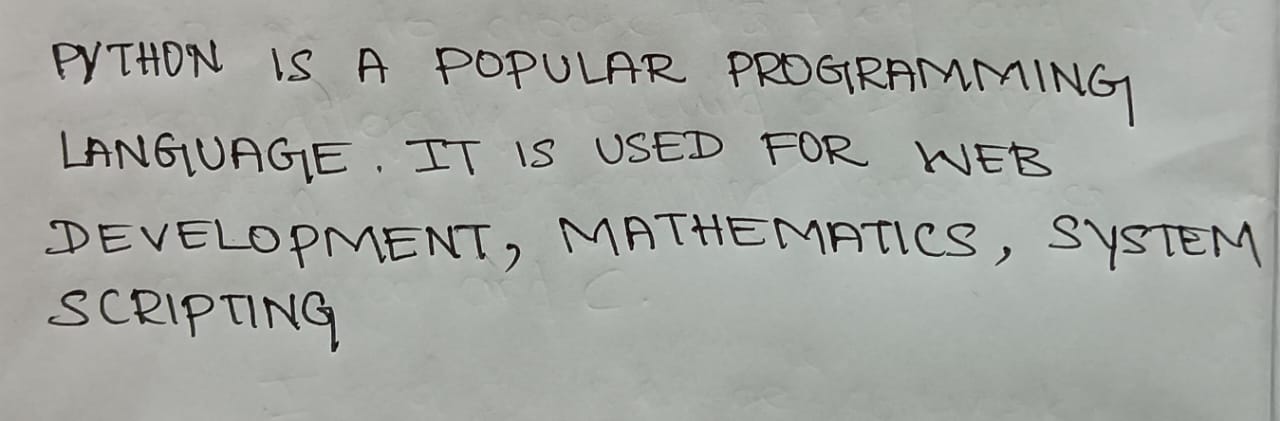 PYTHON IS A POPULAR PROGRAMMING
LANGUAGE. IT IS USED FOR WEB
DEVELOPMENT, MATHEMATICS, SYSTEM
SCRIPTING